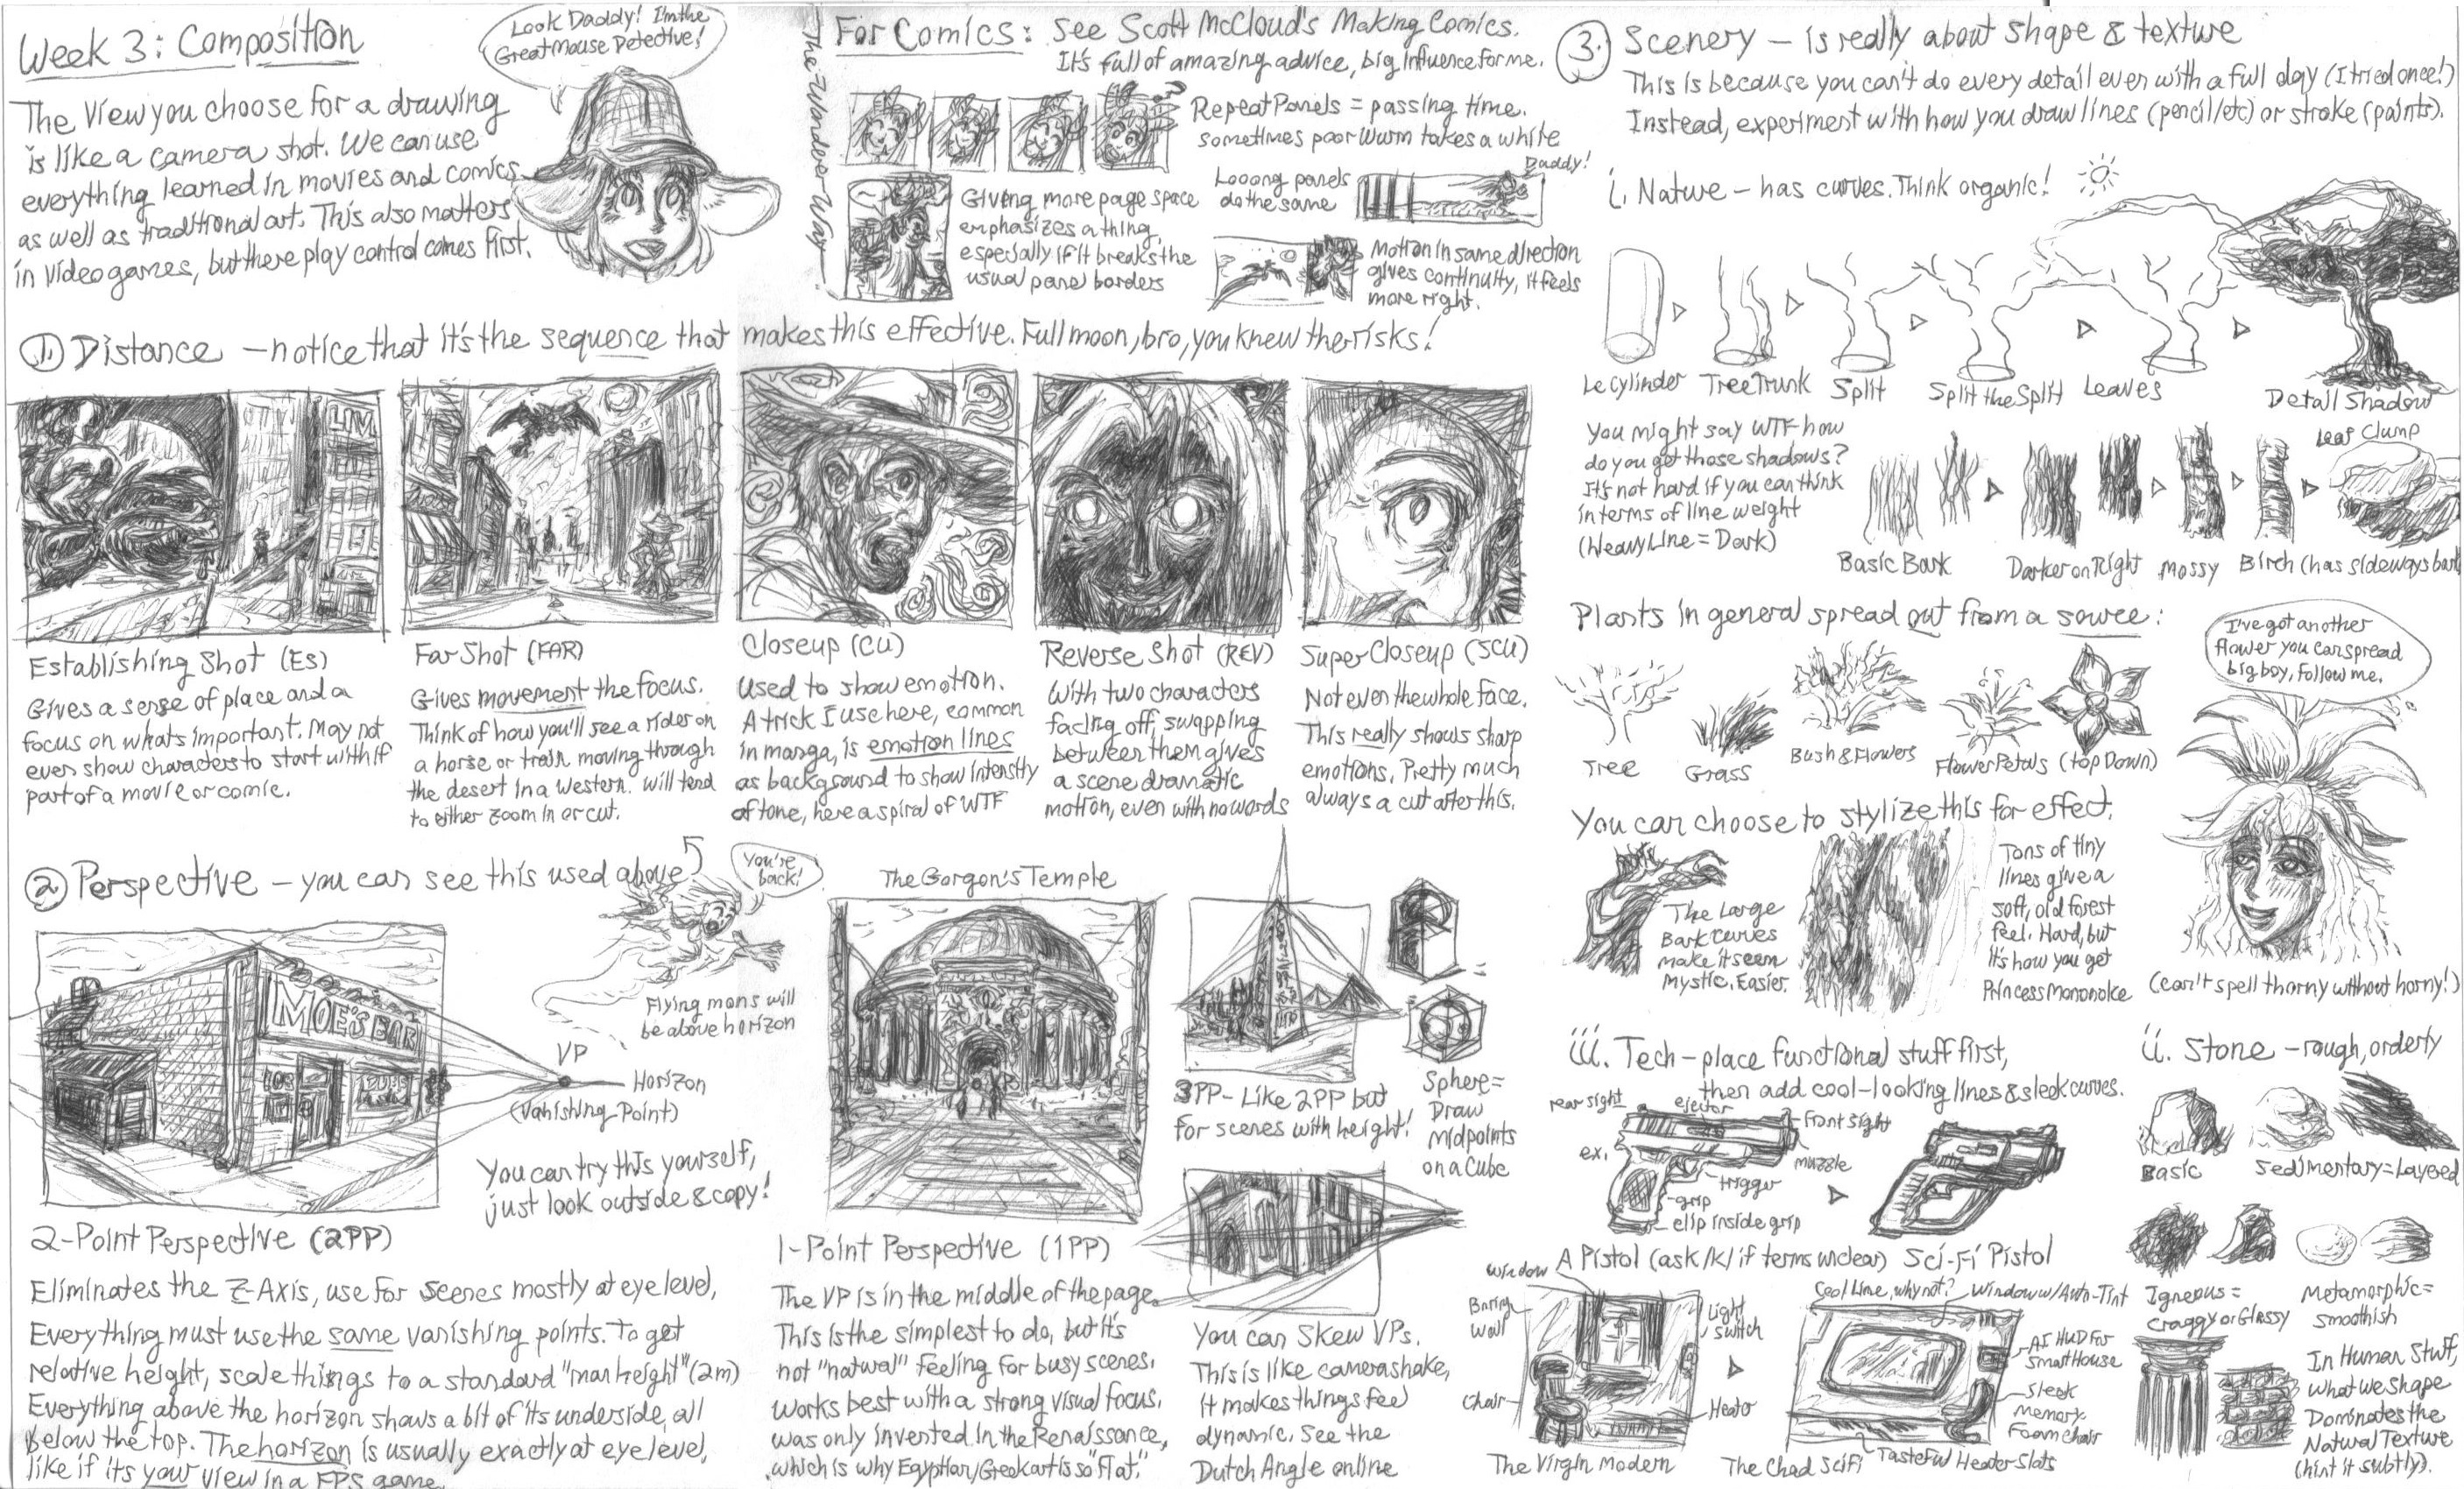 Week 3: Composition
Look Daddy! I'm the
Great Mouse Detective!
The view you choose for a drawing
is like a camera shot. We can use
everything learned in movies and comics
as well as traditional art. This also matters
in video games, but there play control comes first.
The Wonder Way
For Comics: See Scott McCloud's Making Comics.
It's full of amazing advice, big influence for me.
Repeat Panels = passing time.
sometimes poor Wurm takes a while
Giving more page space
emphasizes a thing,
especially if it breaks the
usual panel borders
Looong panels
do the same
Daddy!
Motion in same direction
gives continuity, it feels
more right.
① Distance – notice that it's the sequence that makes this effective. Full moon, bro, you knew the risks!
LIV
Establishing Shot (ES)
Gives a sense of place and a
focus on what's important. May not
even show characters to start with if
part of a movie or comic.
Far Shot (FAR)
Gives movement the focus.
Think of how you'll see a rider on
a horse or train moving through
the desert in a Western. Will tend
to either zoom in or cut.
Closeup (CU)
Used to show emotion.
A trick I use here, common
in manga, is emotion lines
as background to show intensity
of tone, here a spiral of WTF
Reverse Shot (REV)
With two characters
facing off, swapping
between them gives
a scene dramatic
motion, even with no words
Super Closeup (SCU)
Not even the whole face.
This really shows sharp
emotions. Pretty much
always a cut after this.
② Perspective – you can see this used above
You're
back!
MOE'S BAR
Flying mons will
be above horizon
VP
Horizon
(Vanishing Point)
You can try this yourself,
just look outside & copy!
2-Point Perspective (2PP)
Eliminates the Z-Axis, use for scenes mostly at eye level,
Everything must use the same vanishing points. To get
relative height, scale things to a standard "man height" (2m)
Everything above the horizon shows a bit of its underside, all
below the top. The horizon is usually exactly at eye level,
like if it's your view in a FPS game.
The Gorgon's Temple
1-Point Perspective (1PP)
The VP is in the middle of the page.
This is the simplest to do, but it's
not "natural" feeling for busy scenes.
Works best with a strong visual focus.
Was only invented in the Renaissance,
which is why Egyptian/Greek art is so "flat."
3PP – Like 2PP but
for scenes with height!
Sphere =
Draw
Midpoints
on a Cube
You can skew VPs.
This is like camera shake,
it makes things feel
dynamic. See the
Dutch Angle online
③ Scenery – is really about shape & texture
This is because you can't do every detail even with a full day (I tried once!)
Instead, experiment with how you draw lines (pencil/etc) or stroke (paints).
i. Nature – has curves. Think organic!
Le cylinder
Tree Trunk
Split
Split the Split
Leaves
Detail Shadow
You might say WTF how
do you get those shadows?
It's not hard if you can think
in terms of line weight
(Heavy Line = Dark)
Leaf Clump
Basic Bark
Darker on Right
Mossy
Birch (has sideways bark
Plants in general spread out from a source:
Tree
Grass
Bush & Flowers
Flower Petals (top Down)
I've got another
flower you can spread
big boy, follow me.
You can choose to stylize this for effect.
The Large
Bark curves
make it seem
Mystic. Easier.
Tons of tiny
lines give a
soft, old forest
feel. Hard, but
it's how you get
Princess Mononoke
(can't spell thorny without horny!)
iii. Tech – place functional stuff first,
then add cool-looking lines & sleek curves.
rear sight
ejector
front sight
ex.
muzzle
trigger
grip
clip inside grip
A Pistol (ask /k/ if terms unclear)
Sci-Fi Pistol
ii. Stone – rough, orderly
Basic
Sedimentary = Layered
Igneous =
craggy or Glassy
Metamorphic =
smoothish
In Human Stuff,
what we shape
Dominates the
Natural Texture
(hint it subtly).
Window
Boring
Wall
Light
Switch
Chair
Heater
The Virgin Modern
Cool Line, why not?
Window w/Auto-Tint
AI HUD for
Smart House
Sleek
Memory
Foam Chair
Tasteful Heater Slots
The Chad Scifi